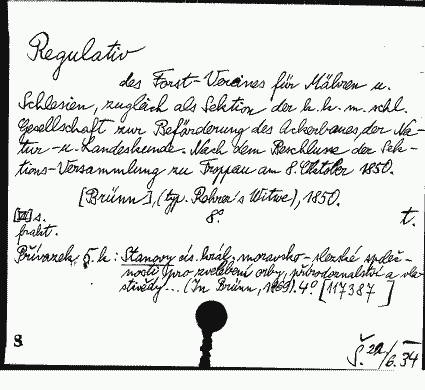 Regulativ
des Forst-Vereines für Mähren u.
Schlesien, zugleich als Sektion der k.k. m. schl.
Gesellschaft zur Beförderung des Ackerbaues, der Na-
tur- u. Landeskunde. Nach dem Beschlusse der Sek-
tions-Versammlung zu Troppau am 8. Oktober 1850.
[Brünn], (typ. Rohrer's Witwe), 1850.
s. 8°. t.
frakt.
Přívazek 5. k: Stanovy cís. král. moravsko-slezské společ-
nosti pro zvelebení orby, přírodoznalství a vla-
stivědy... (In Brünn, 1869). 4° [117387]
8
Š. /6. 34